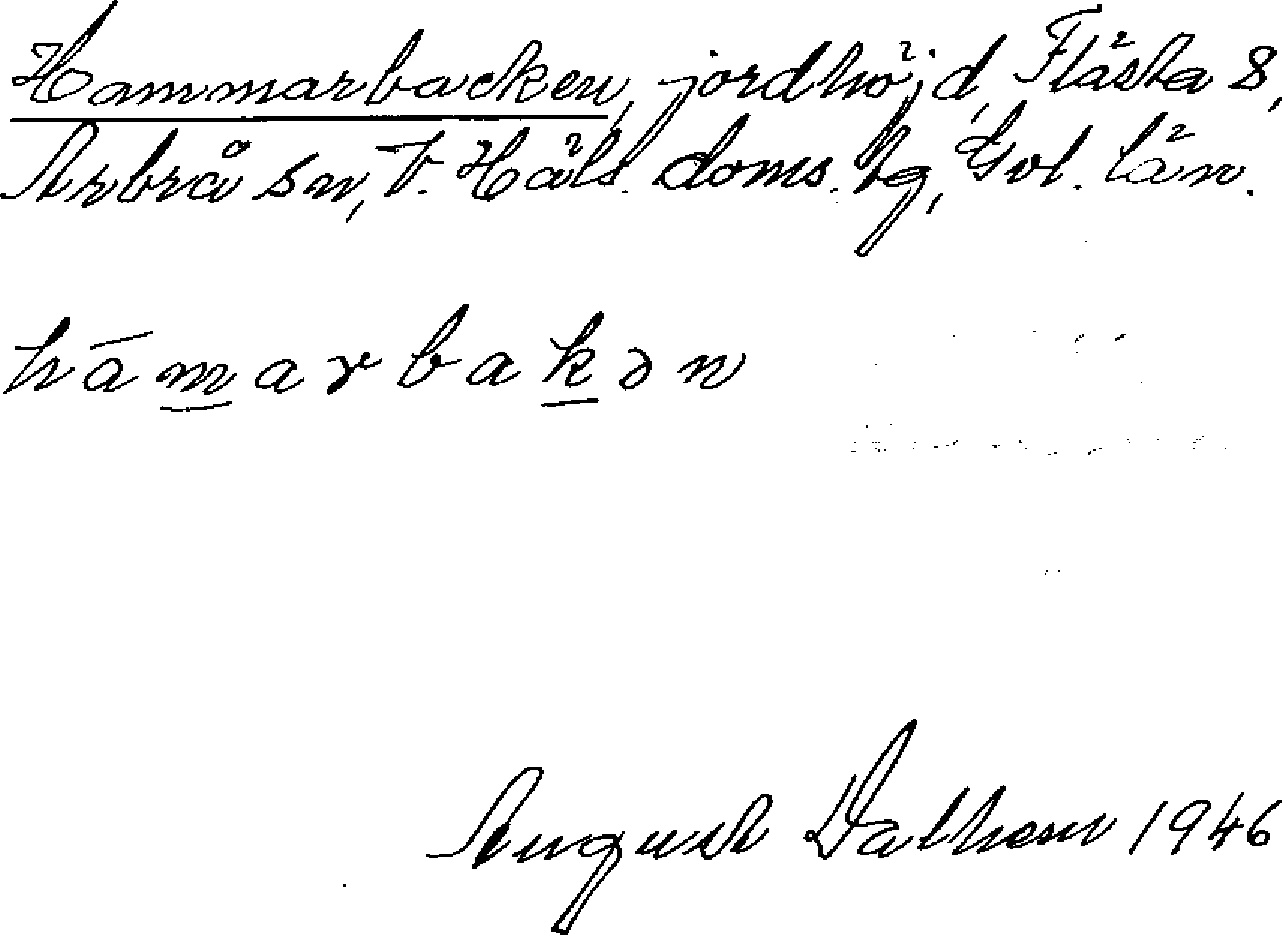 Hammarbacken, jordhöjd, Flästa 8,
Arbrå sn, V. Häls. doms. tg, Gvl. län.
hāmarbakən
August Dalhem 1946